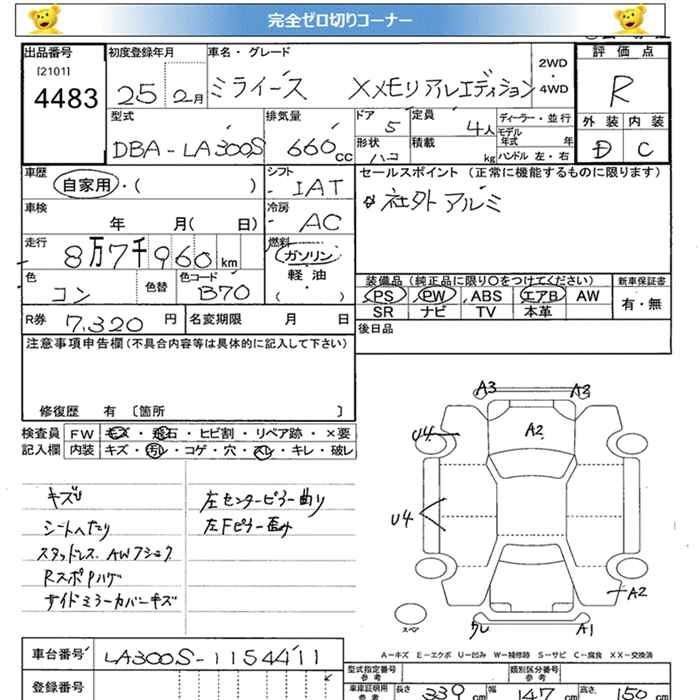 完全ゼロ切りコーナー
出品番号
[2101]
4483
初度登録年月
25 2月
車名・グレード
ミライース Xメモリアルエディション
2WD
・
4WD
評価点
R
外装 内装
D C
型式
DBA-LA300S
排気量
660cc
ドア
5
形状
ハコ
定員
4人
積載
kg
ディーラー・並行
モデル年式 年
ハンドル 左・右
車歴
自家用・( )
シフト
IAT
セールスポイント (正常に機能するものに限ります)
社外アルミ
車検
年 月( 日)
冷房
AC
走行
8万7千960km
燃料
ガソリン
軽油
( )
色
コン
色替
色コード
B70
装備品 (純正品に限り〇をつけてください)
PS PW ABS エアB AW
SR ナビ TV 本革
新車保証書
有・無
R券 7,320円
名変期限 月 日
後日品
注意事項申告欄(不具合内容等は具体的に記入して下さい)
修復歴 有 〔箇所 〕
検査員
記入欄
FW キズ・飛石・ヒビ割・リペア跡・×要
内装 キズ・汚レ・コゲ・穴・スレ・キレ・破レ
キズU
シートへたり
スタッドレス AWフショク
RスポPハゲ
サイドミラーカバーキズ
左センターピラー曲り
左Fピラー歪み
A3 A3
A2
U4
U4
A2
クレ A1
スペア
A-キズ E-エクボ U-凹み W-補修跡 S-サビ C-腐食 XX-交換済
車台番号 LA300S-1154411
登録番号
型式指定番号
参考
類別区分番号
参考
車庫証明用
参考
長さ 339cm 幅 147cm 高さ 150cm